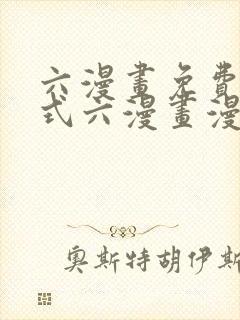 六漫畫免費
式六漫畫漫
奧斯特胡伊斯